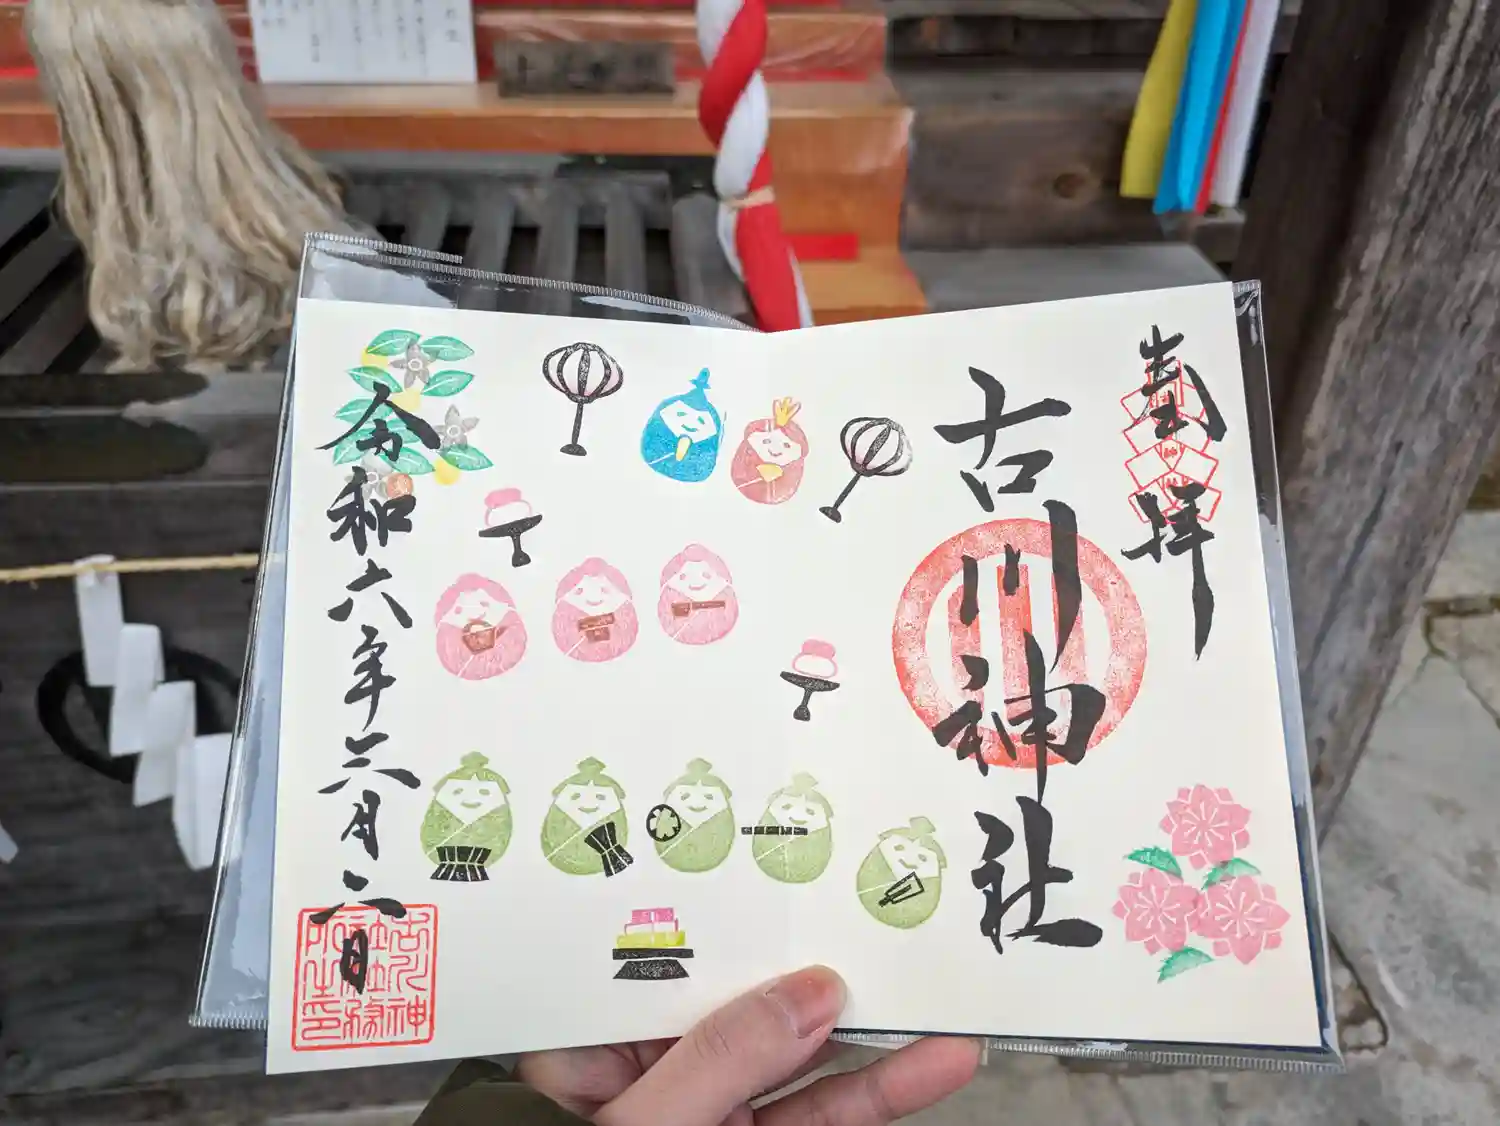 奉拝
古川神社
令和六年三月二日
古川神
社社務
所之印